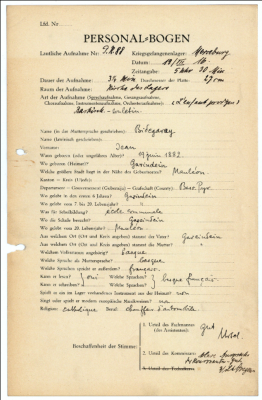 Lfd. Nr.
PERSONAL-BOGEN
Lautliche Aufnahme Nr.: Kriegsgefangenenlager: Merseburg
Datum:
Zeitangabe: 5 Uhr 30 Min
Dauer der Aufnahme: 3¼ Min Durchmesser der Platte: 27 cm
Raum der Aufnahme: Küche des Lagers
Art der Aufnahme (Sprechaufnahme, Gesangsaufnahme,
Choraufnahme, Instrumentenaufnahme, Orchesteraufnahme): (L'enfant prodigue)
Name (in der Muttersprache geschrieben):
Name (lateinisch geschrieben):
Vorname: Jean
Wann geboren (oder ungefähres Alter)? 1882
Wo geboren (Heimat)? Garindein
Welche größere Stadt liegt in der Nähe des Geburtsortes? Mauléon
Kanton — Kreis (Ujedz):
Departement — Gouvernement (Gubernija) — Grafschaft (County): Bas. Pyr.
Wo gelebt in den ersten 6 Jahren? Garindein
Wo gelebt vom 7 bis 20. Lebensjahr?
Was für Schulbildung? école communale
Wo die Schule besucht? Garindein
Wo gelebt vom 20. Lebensjahr? Mauléon
Aus welchem Ort (Ort und Kreis angeben) stammt der Vater? Garindein
Aus welchem Ort (Ort und Kreis angeben) stammt die Mutter?
Welchem Volksstamm angehörig? basque
Welche Sprache als Muttersprache? basque
Welche Sprachen spricht er außerdem? français
Kann er lesen? oui Welche Sprachen? basque français
Kann er schreiben? Welche Sprachen?
Spielt er ein im Lager vorhandenes Instrument aus der Heimat? non
Singt oder spielt er moderne europäische Musikweisen? no
Religion: catholique Beruf: chauffeur d'automobile
Beschaffenheit der Stimme:
1. Urteil des Fachmannes
(des Assistenten): Gut
2. Urteil des Kommissars:
3. Urteil des Technikers